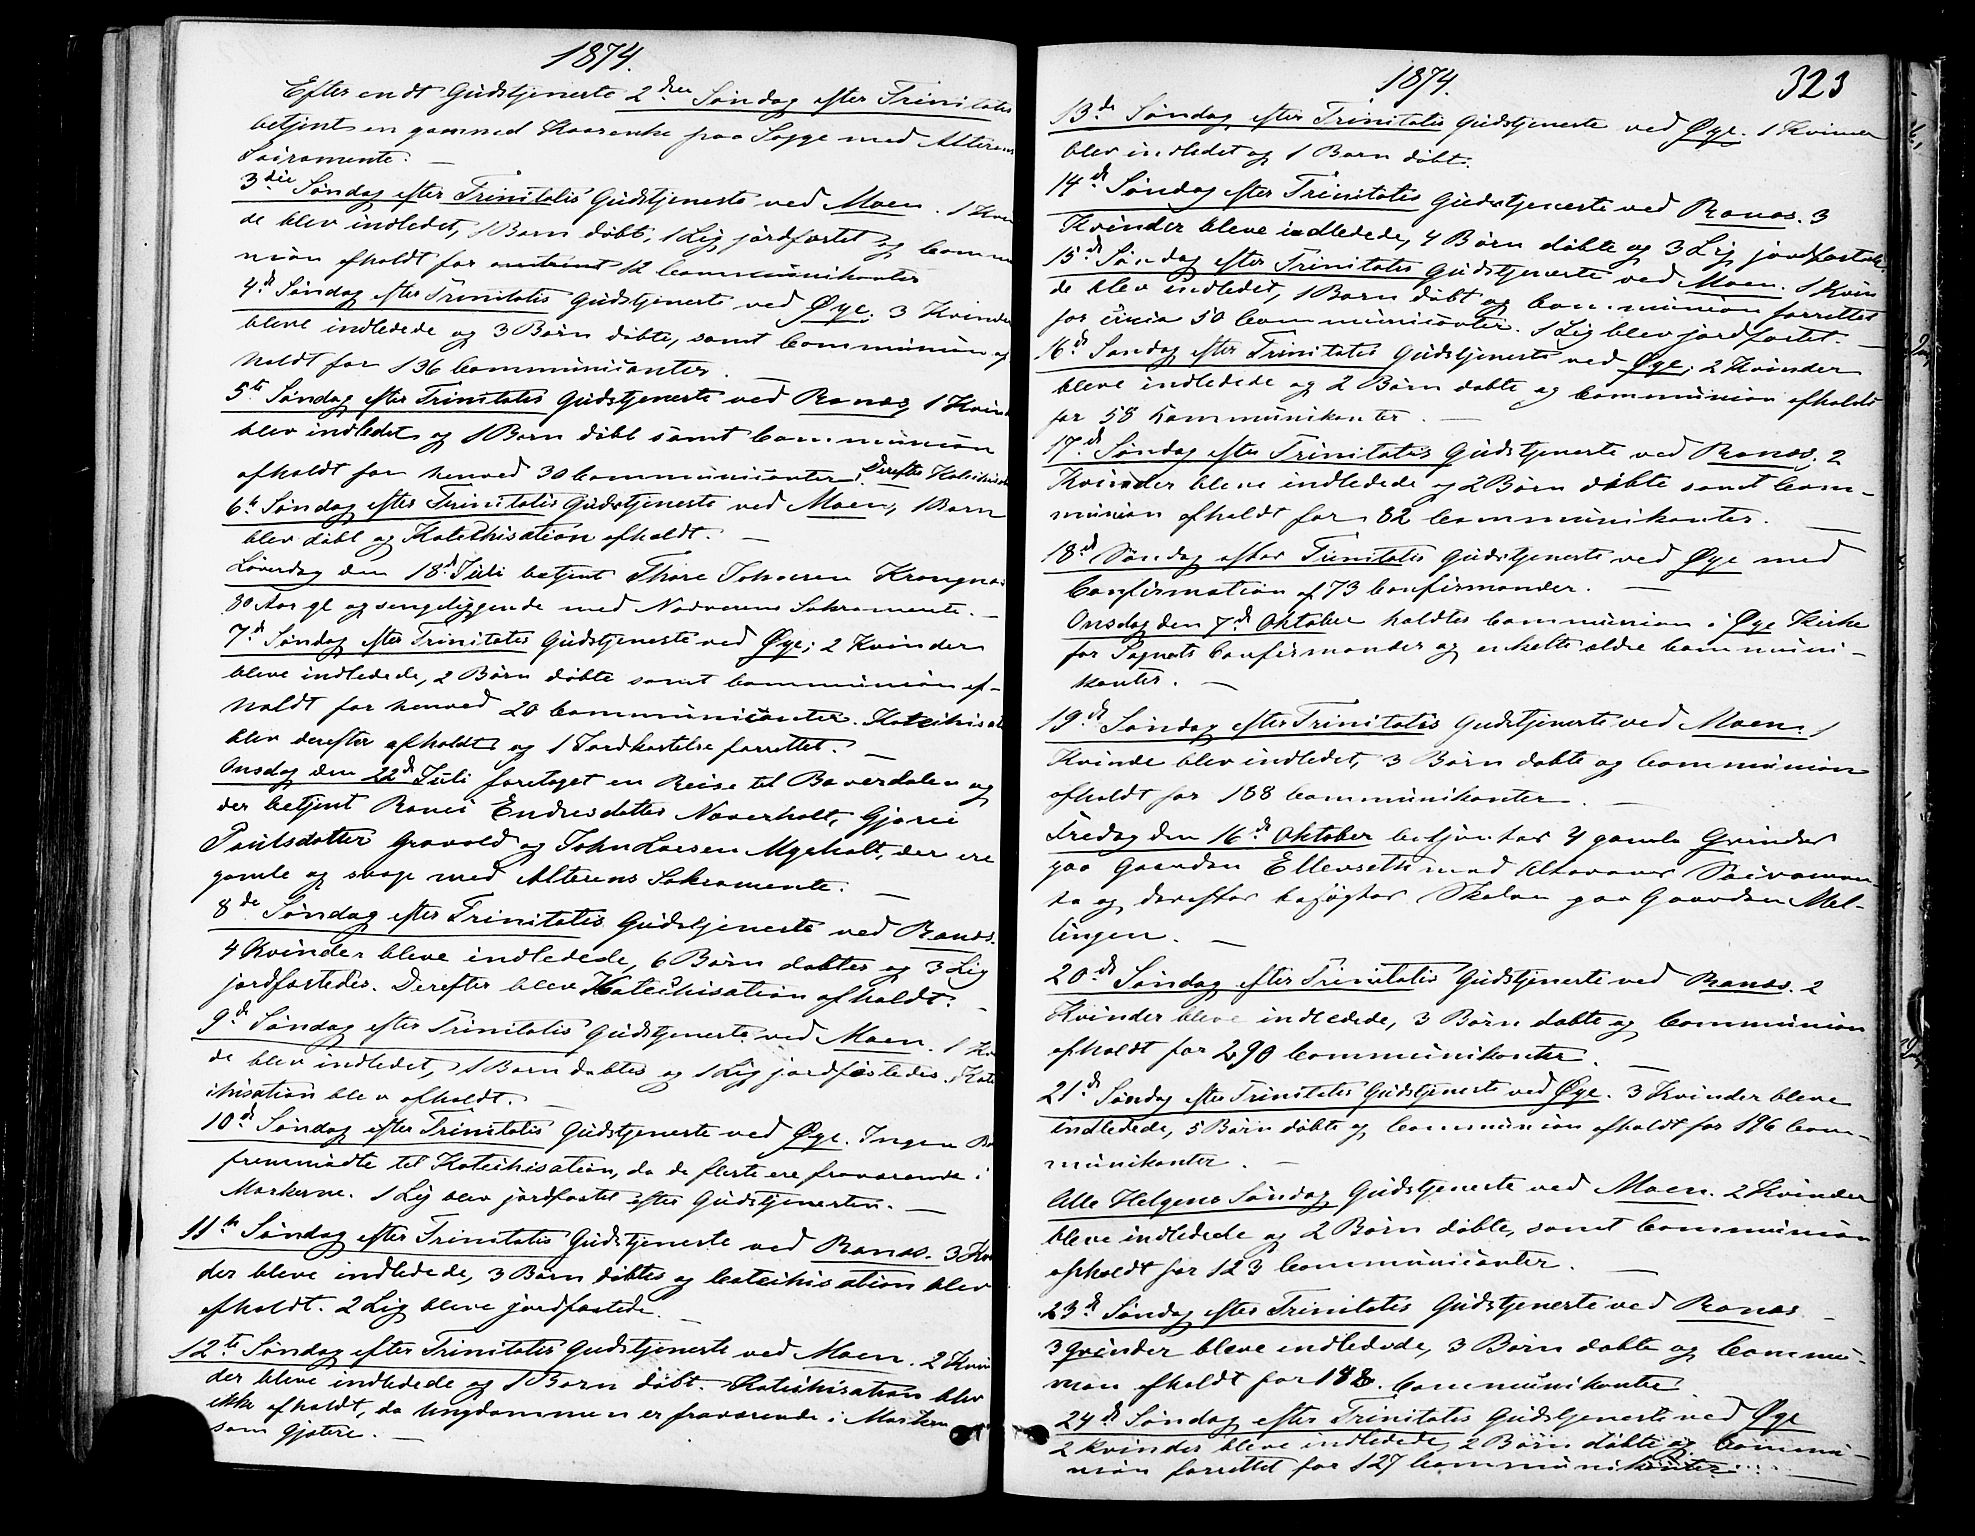 1874.
Efter endt Gudstjeneste 2den Søndag efter Trinitatis
betjent en gammel Kaarenke paa Sogge med Alterens
Sacramente. —
3die Søndag efter Trinitatis Gudstjeneste ved Moen. 1 Kvin
de blev indledet, 1 Barn døbt, 1 Lig jordfæstet og Commu
nion afholdt for omtrent 12 Communikanter
4de Søndag efter Trinitatis Gudstjeneste ved Øye; 3 Kvinder
bleve indledede og 3 Børn døbte, samt Communion af
holdt for 136 Communicanter. —
5te Søndag efter Trinitatis Gudstjeneste ved Ranæs, 1 Kvinde
blev indledet og 1 Barn døbt samt Communion
afholdt for henved 30 Communicanter. Derefter Katechisa
6te Søndag efter Trinitatis Gudstjeneste ved Moen, 1 Barn
blev døbt og Katechisation afholdt. —
Løverdag den 18de Juli betjent Thore Tohnesen Krangnæs
80 Aar gl og sengeliggende med Nadverens Sakramente. —
7de Søndag efter Trinitatis Gudstjeneste ved Øye; 2 Kvinder
bleve indledede, 2 Børn døbte samt Communion af-
holdt for henved 20 Communicanter. Katechisat
blev derefter afholdt og 1 Jordkastelse forrettet. —
Onsdag den 22de Juli foretaget en Reise til Bæverdalen og
der betjent Ranei Endresdatter Naverholt, Gjøree
Paulsdatter Gravold og John Larsen Myrholt, der ere
gamle og svage med Alterens Sakramente. —
8de Søndag efter Trinitatis Gudstjeneste ved Ranæs.
4 Kvinder bleve indledede, 6 Børn døbtes og 3 Lig
jordfæstedes. Derefter blev Katechisation afholdt. —
9de Søndag efter Trinitatis Gudstjeneste ved Moen. 1 Kv
de blev indledet, 1 Barn døbtes og 1 Lig jordfæstedes. Kate
chisation blev afholdt. —
10de Søndag efter Trinitatis Gudstjeneste ved Øye. Ingen Bø
fremmødte til Katechisation, da de fleste ere fraværende i
Markerne. 1 Lig blev jordfæstet efter Gudstjenesten. —
11te Søndag efter Trinitatis Gudstjeneste ved Ranæs. 3 Kv
der bleve indledede, 3 Børn døbtes og Catechisation blev
afholdt. 2 Lig bleve jordfæstede —
12te Søndag efter Trinitatis Gudstjeneste ved Moen. 2 Kvin
der bleve indledede og 1 Barn døbt. Katechisation blev
ikke afholdt, da Ungdommen er fraværende i Marken
som Gjætere. —
1874. 323
13de Søndag efter Trinitatis Gudstjeneste ved Øye. 1 Kvinde
blev indledet og 1 Barn døbt.
14de Søndag efter Trinitatis Gudstjeneste ved Ranæs. 3
Kvinder bleve indledede, 4 Børn døbte og 3 Lig jordfæstede.
15de Søndag efter Trinitatis Gudstjeneste ved Moen. 1 Kvin
de blev indledet, 1 Barn døbt og Communion forrettet
for circa 50 Communicanter. 1 Lig blev jordfæstet. —
16de Søndag efter Trinitatis Gudstjeneste ved Øye; 2 Kvinder
bleve indledede og 2 Børn døbte og Communion afholdt
for 58 Kommunikanter. —
17de Søndag efter Trinitatis Gudstjeneste ved Ranæs; 2
Kvinder bleve indledede og 2 Børn døbte samt Com-
munion afholdt for 82 Communikanter. —
18de Søndag efter Trinitatis Gudstjeneste ved Øye med
Confirmation af 73 Confirmander. —
Onsdag den 7de Oktober holdtes Communion i Øye Kirke
for Sognets Confirmander og enkelte ældre Communi-
kanter. —
19de Søndag efter Trinitatis Gudstjeneste ved Moen. 1
Kvinde blev indledet, 3 Børn døbte og Communion
afholdt for 188 Communikanter. —
Fredag den 16de Oktober betjentes 4 gamle Qvinder
paa Gaarden Ellevsæth med Alterens Sacramen-
te og derefter besøgtes Skolen paa Gaarden Mel-
lingen. —
20de Søndag efter Trinitatis Gudstjeneste ved Ranæs. 2
Kvinder bleve indledede, 3 Børn døbte og Communion
afholdt for 290 Communikanter. —
21de Søndag efter Trinitatis Gudstjeneste ved Øye. 3 Kvinder bleve
indledede, 5 Børn døbte og Communion afholdt for 196 Com-
munikanter. —
Alle Helgens Søndag Gudstjeneste ved Moen. 2 Kvinder
bleve indledede og 2 Børn døbte, samt Communion
afholdt for 123 Communicanter. —
23de Søndag efter Trinitatis Gudstjeneste ved Ranæs —
3 Qvinder bleve indledede, 3 Børn døbte og Commu-
nion afholdt for 188. Communikanter
24de Søndag efter Trinitatis Gudstjeneste ved Øye
2 Kvinder bleve indledede, 2 Børn døbte og Commu-
nion forrettet for 127 Communikanter.